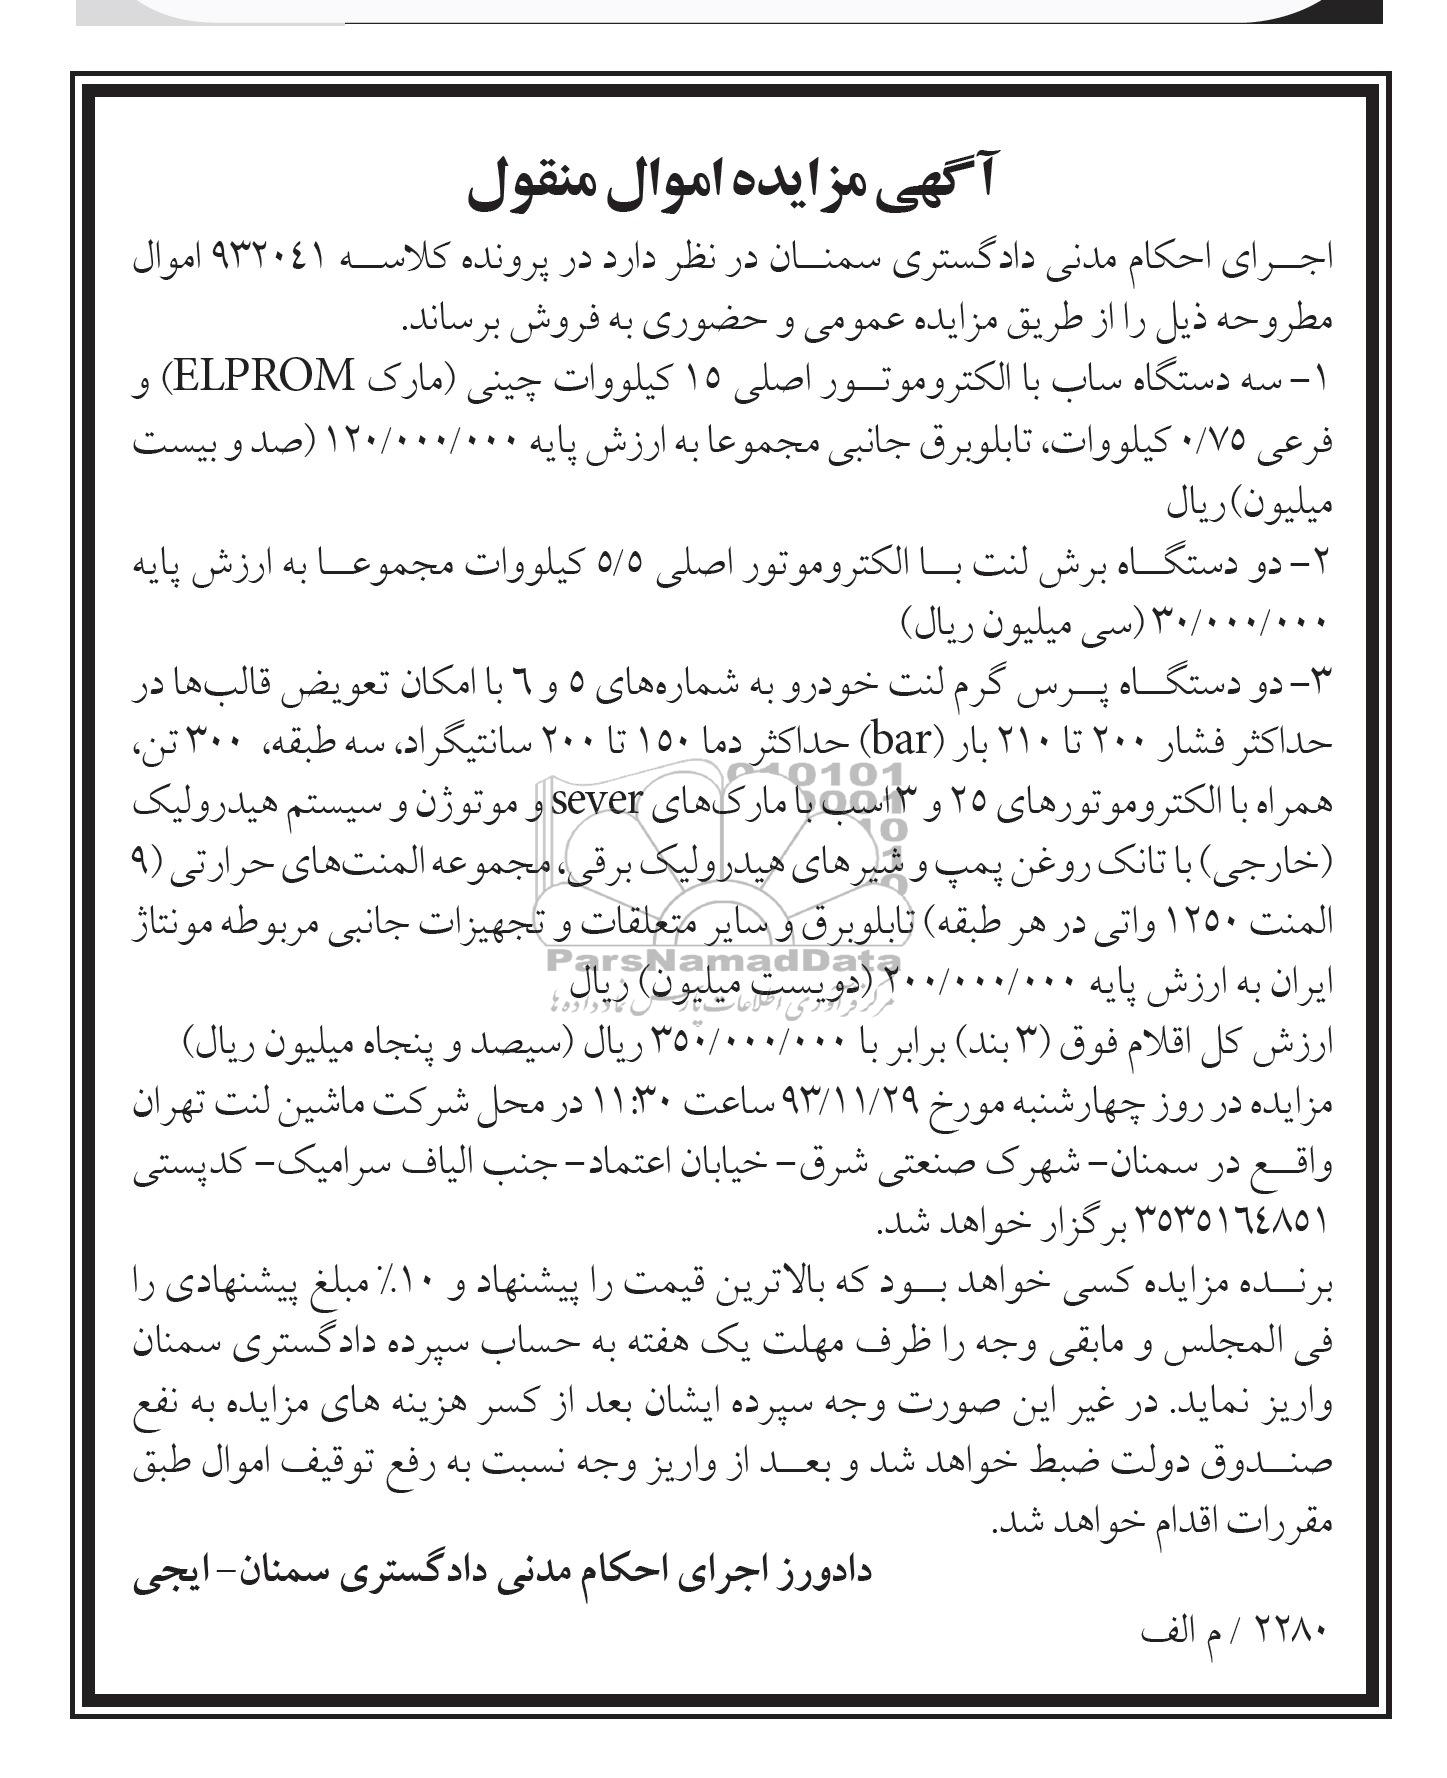 آگهی مزایده اموال منقول
اجـــرای احکام مدنی دادگستری سمنـــان در نظر دارد در پرونده کلاســـه ۹۳۲۰٤۱ اموال
مطروحه ذیل را از طریق مزایده عمومی و حضوری به فروش برساند.
۱- سه دستگاه ساب با الکتروموتـــور اصلی ۱٥ کیلووات چینی (مارک ELPROM) و
فرعی ۰/۷٥ کیلووات، تابلوبرق جانبی مجموعا به ارزش پایه ۱۲۰/۰۰۰/۰۰۰ (صد و بیست
میلیون)ریال
۲- دو دستگـــاه برش لنت بـــا الکتروموتور اصلی ٥/٥ کیلووات مجموعـــا به ارزش پایه
۳۰/۰۰۰/۰۰۰ (سی میلیون ریال)
۳- دو دستگـــاه پـــرس گرم لنت خودرو به شماره‌های ٥ و ٦ با امکان تعویض قالب‌ها در
حداکثر فشار ۲۰۰ تا ۲۱۰ بار (bar) حداکثر دما ۱٥۰ تا ۲۰۰ سانتیگراد، سه طبقه، ۳۰۰ تن،
همراه با الکتروموتورهای ۲٥ و ۳ اسب با مارک‌های sever و موتوژن و سیستم هیدرولیک
(خارجی) با تانک روغن پمپ و شیرهای هیدرولیک برقی، مجموعه المنت‌های حرارتی (۹
المنت ۱۲٥۰ واتی در هر طبقه) تابلوبرق و سایر متعلقات و تجهیزات جانبی مربوطه مونتاژ
ایران به ارزش پایه ۲۰۰/۰۰۰/۰۰۰ (دویست میلیون) ریال
ParsNamadData
مرکز فرآوری اطلاعات پارس نماد داده ها
ارزش کل اقلام فوق (۳ بند) برابر با ۳٥۰/۰۰۰/۰۰۰ ریال (سیصد و پنجاه میلیون ریال)
مزایده در روز چهارشنبه مورخ ۹۳/۱۱/۲۹ ساعت ۱۱:۳۰ در محل شرکت ماشین لنت تهران
واقـــع در سمنان- شهرک صنعتی شرق- خیابان اعتماد- جنب الیاف سرامیک- کدپستی
۳٥۳٥۱٦٤۸٥۱ برگزار خواهد شد.
برنـــده مزایده کسی خواهد بـــود که بالاترین قیمت را پیشنهاد و ۱۰٪ مبلغ پیشنهادی را
فی المجلس و مابقی وجه را ظرف مهلت یک هفته به حساب سپرده دادگستری سمنان
واریز نماید. در غیر این صورت وجه سپرده ایشان بعد از کسر هزینه های مزایده به نفع
صنـــدوق دولت ضبط خواهد شد و بعـــد از واریز وجه نسبت به رفع توقیف اموال طبق
مقررات اقدام خواهد شد.
دادورز اجرای احکام مدنی دادگستری سمنان- ایجی
۲۲۸۰ / م الف